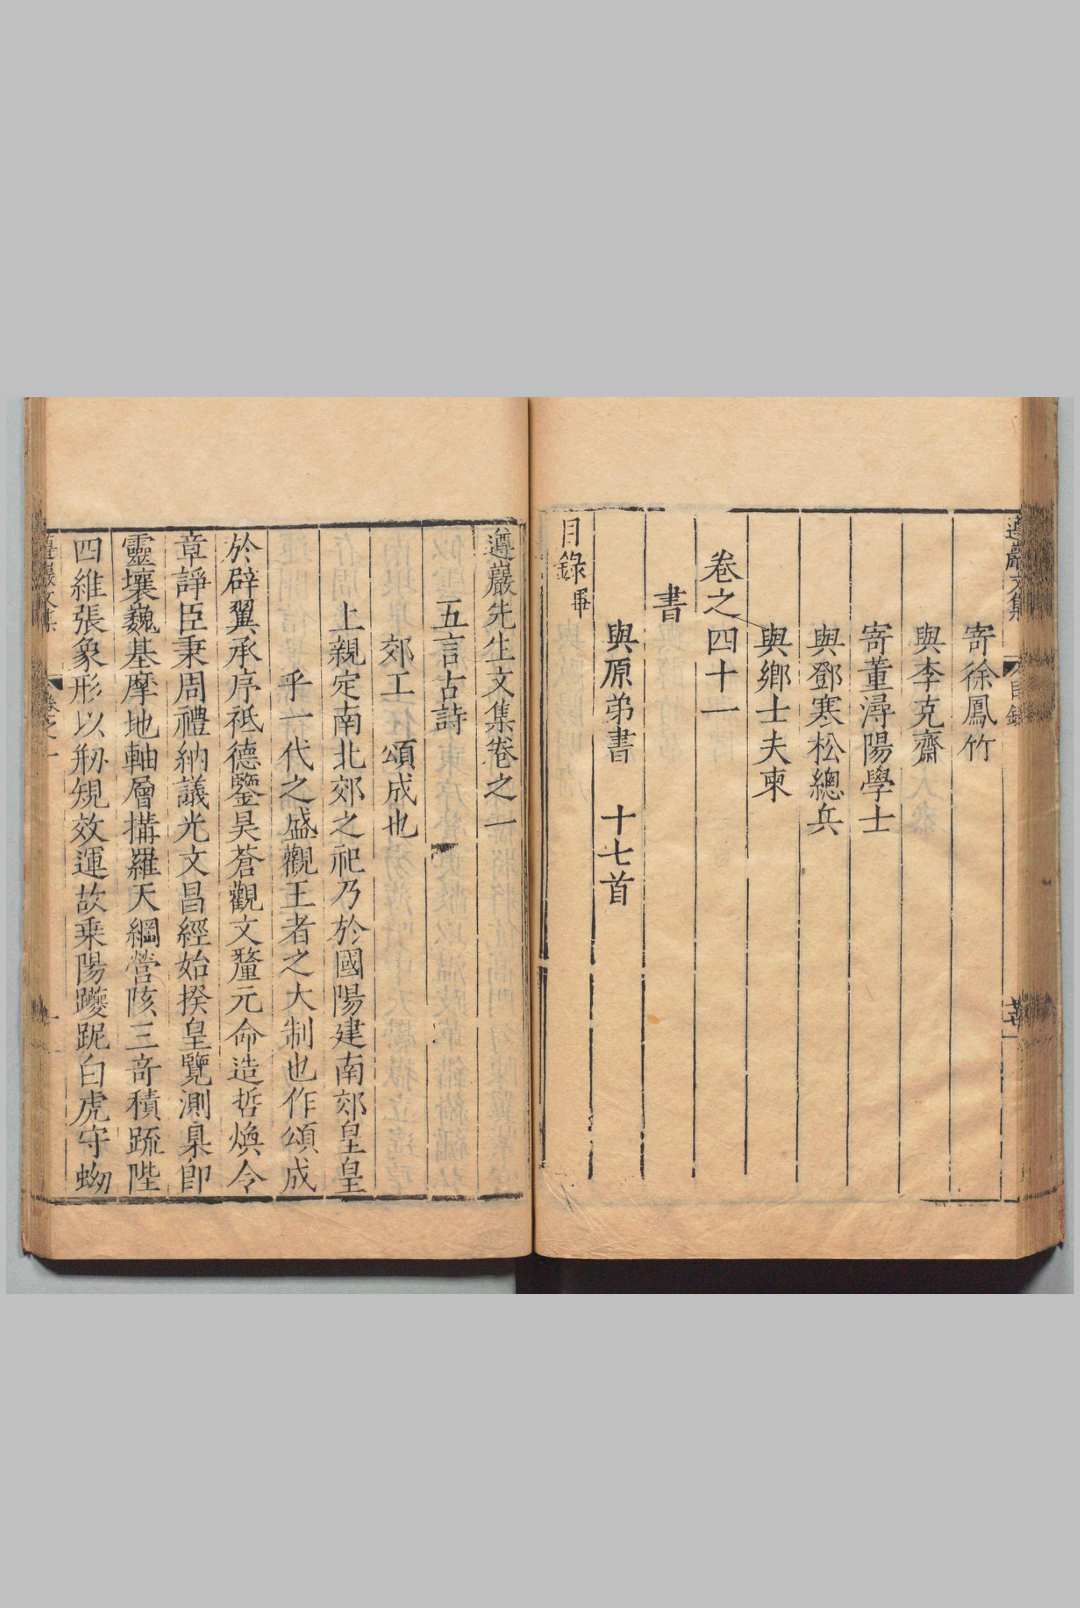 遵巖文集
目錄
寄徐鳳竹
與李克齋
寄董潯陽學士
與鄧寒松總兵
與鄉士夫柬
卷之四十一
書
與原弟書 十七首
目錄畢
遵巖先生文集卷之一
五言古詩
郊工 頌成也
上親定南北郊之祀乃於國陽建南郊皇皇
乎一代之盛觀王者之大制也作頌成
於辟翼承序祗德鑒昊蒼觀文釐元命造哲煥令
章諍臣秉周禮納議光文昌經始揆皇覽測臬卽
靈壤巍基摩地軸層搆羅天綱營陔三奇積䟽陛
四維張象形以剏䂓效運故乗陽躨跜白虎守蚴
遵巖文集
卷之一
一